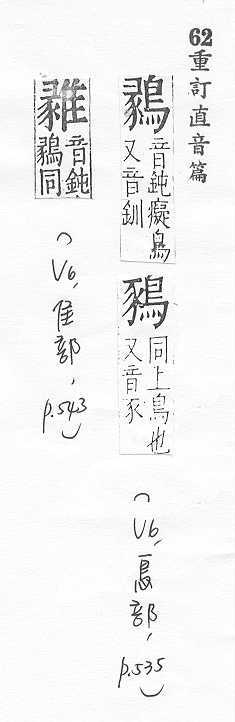 62重訂直音篇
鶨
音鈍癡鳥
又音釧
同上鳥也
又音豕
(V6, 鳥部, p.535)
音鈍
鶨同
(V6, 隹部, p.543)